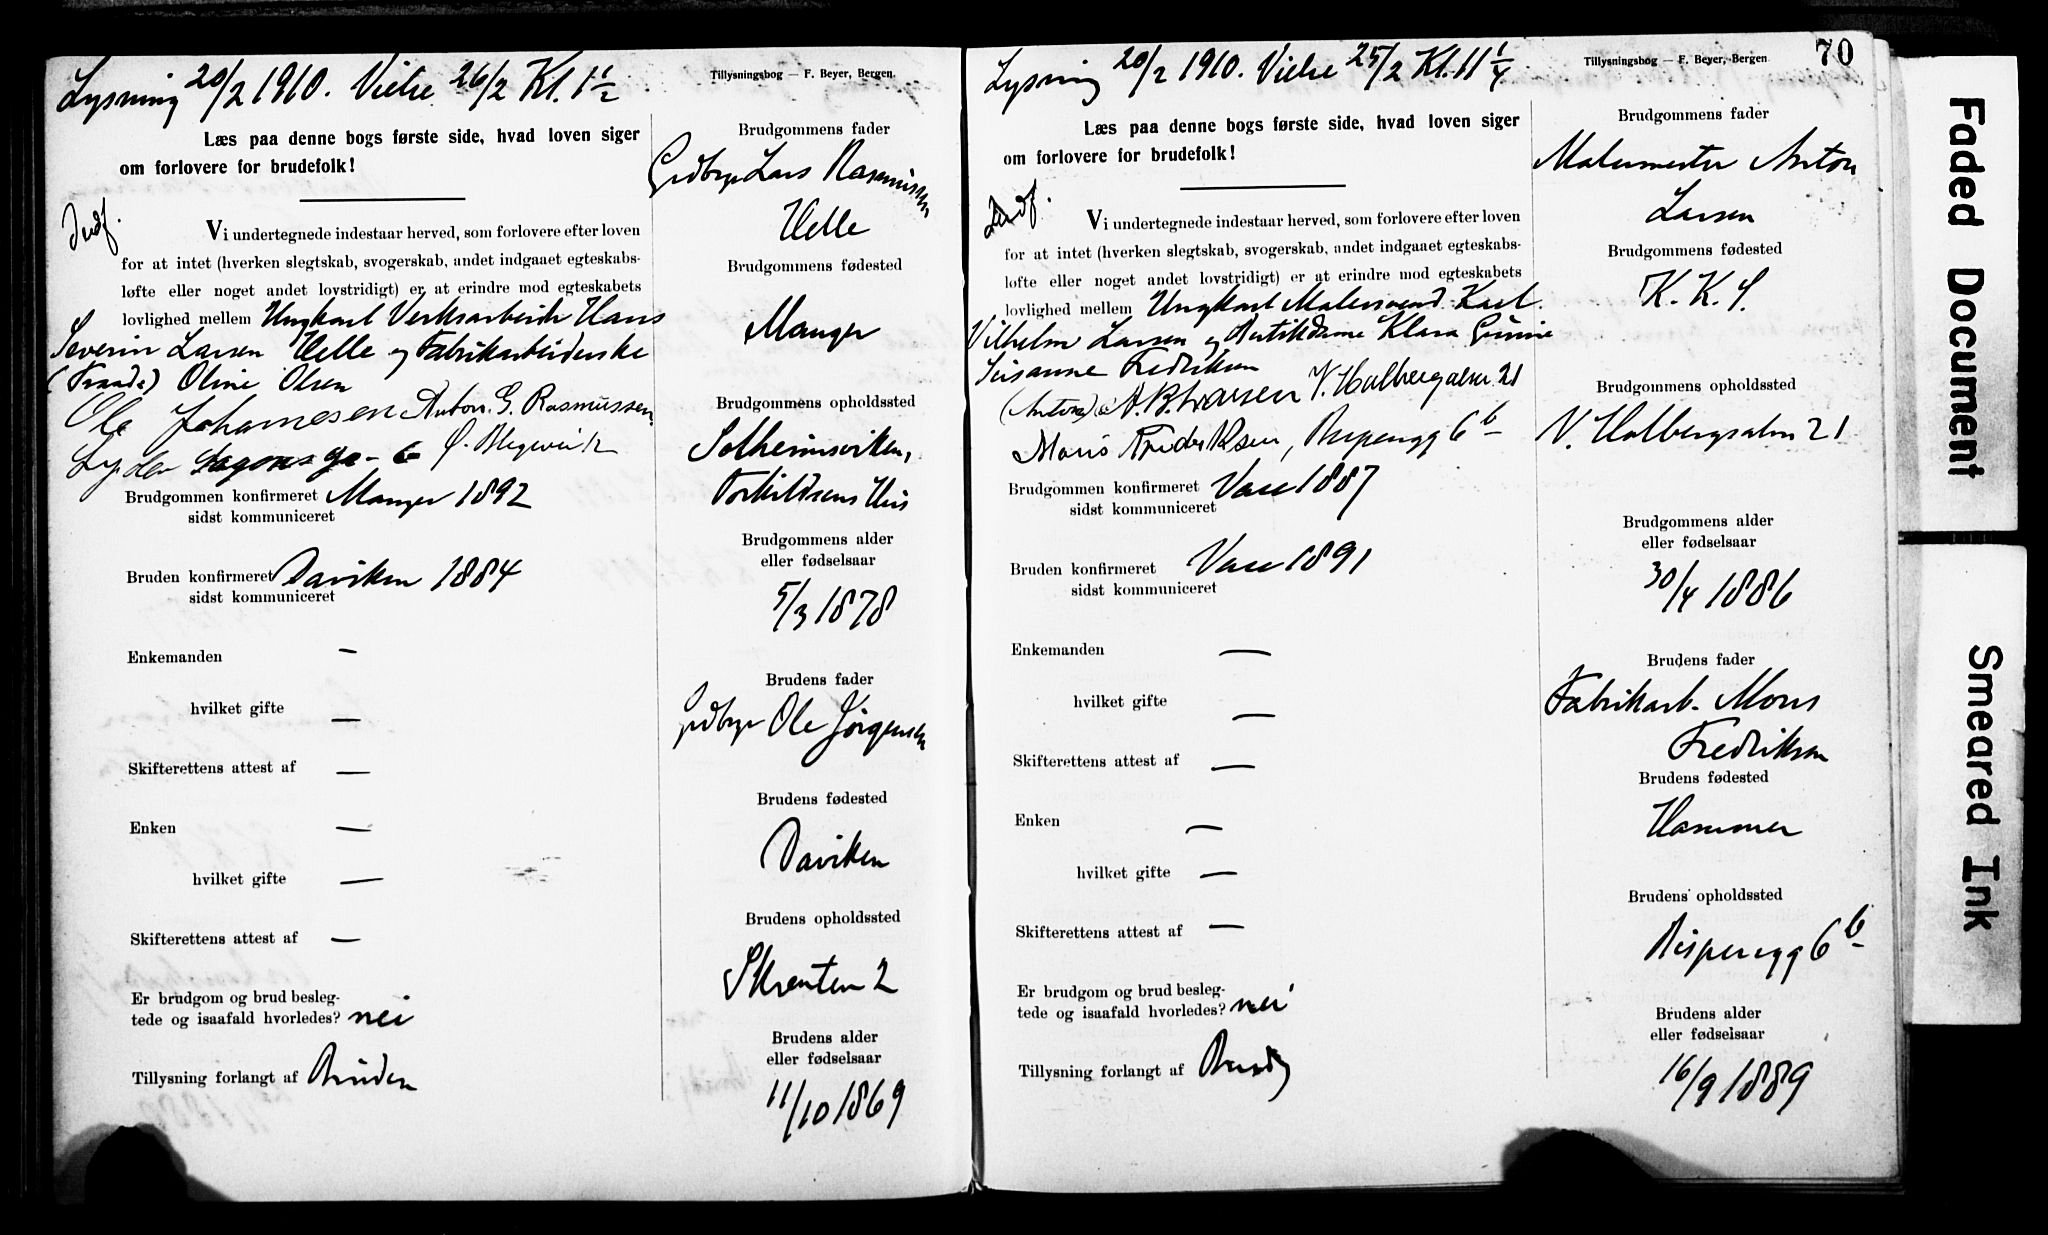 Lysning 20/2 1910. Vielse 26/2 Kl. 1 1/2
Tillysningsbog — F. Beyer, Bergen.
Læs paa denne bogs første side, hvad loven siger
om forlovere for brudefolk!
Indf.
Vi undertegnede indestaar herved, som forlovere efter loven
for at intet (hverken slegtskab, svogerskab, andet indgaaet egteskabs-
løfte eller noget andet lovstridigt) er at erindre mod egteskabets
lovlighed mellem Ungkarl Verksarbeider Hans
Severin Larsen Helle og Fabrikarbeiderske
Oline Olsen
Ole Johannesen Anton. G. Rasmussen
Brudgommen konfirmeret Manger 1892
sidst kommuniceret
Bruden konfirmeret Daviken 1884
sidst kommuniceret
Enkemanden —
hvilket gifte —
Skifterettens attest af —
Enken —
hvilket gifte —
Skifterettens attest af —
Er brudgom og brud besleg-
tede og isaafald hvorledes? nei
Tillysning forlangt af Bruden
Brudgommens fader
Grdbr Lars Rasmussen
Helle
Brudgommens fødested
Manger
Brudgommens opholdssted
Solheimsviken,
Torkildsens Hus
Brudgommens alder
eller fødselsaar
5/3 1878
Brudens fader
Grdbr Ole Jørgensen
Brudens fødested
Daviken
Brudens opholdssted
Skrenten 2
Brudens alder
eller fødselsaar
11/10 1869
Lysning 20/2 1910. Vielse 25/2 Kl. 11 1/4
Tillysningsbog — F. Beyer, Bergen
70
Læs paa denne bogs første side, hvad loven siger
om forlovere for brudefolk!
Indf.
Vi undertegnede indestaar herved, som forlovere efter loven
for at intet (hverken slegtskab, svogerskab, andet indgaaet egteskabs-
løfte eller noget andet lovstridigt) er at erindre mod egteskabets
lovlighed mellem Ungkarl Malersvend Karl
Vilhelm Larsen og Butikdame Klara Gurine
Susanne Fredriksen
(Anton) A. B. Larsen V. Holbergsalm 21
Mons Frederiksen, Bispengg 6b
Brudgommen konfirmeret Vaar 1887
sidst kommuniceret
Bruden konfirmeret Vaar 1891
sidst kommuniceret
Enkemanden —
hvilket gifte —
Skifterettens attest af —
Enken —
hvilket gifte —
Skifterettens attest af —
Er brudgom og brud besleg-
tede og isaafald hvorledes? nei
Tillysning forlangt af Brudg
Brudgommens fader
Malermester Anton
Larsen
Brudgommens fødested
K. K. S.
Brudgommens opholdssted
V. Holbergsalm 21
Brudgommens alder
eller fødselsaar
30/4 1886
Brudens fader
Fabrikarb. Mons
Fredriksen
Brudens fødested
Hammer
Brudens opholdssted
Bispengg 6b
Brudens alder
eller fødselsaar
16/9 1889
Faded Document
Smeared Ink